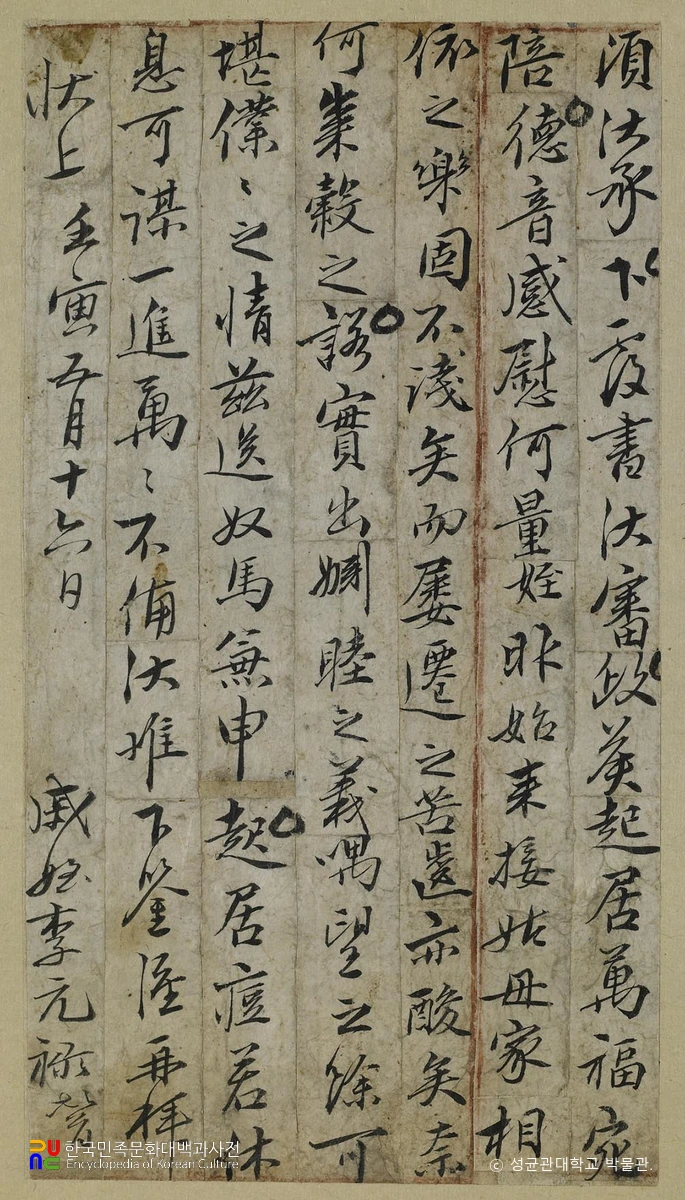 頃伏承下覆書伏審政候起居萬福宛
陪德音感慰何量姪昨始來接姑母家相
依之樂固不淺矣而屢遷之苦亦酸矣奈
何穀之諭實出嫺睦之義喁望之餘可
堪僕〻之情玆送奴馬兼申起居痘若休
息可謀一進萬〻不備伏惟下鑒謹再拜
狀上 壬寅五月十六日 戚姪李元祿等
한국민족문화대백과사전
Encyclopedia of Korean Culture
© 성균관대학교 박물관.